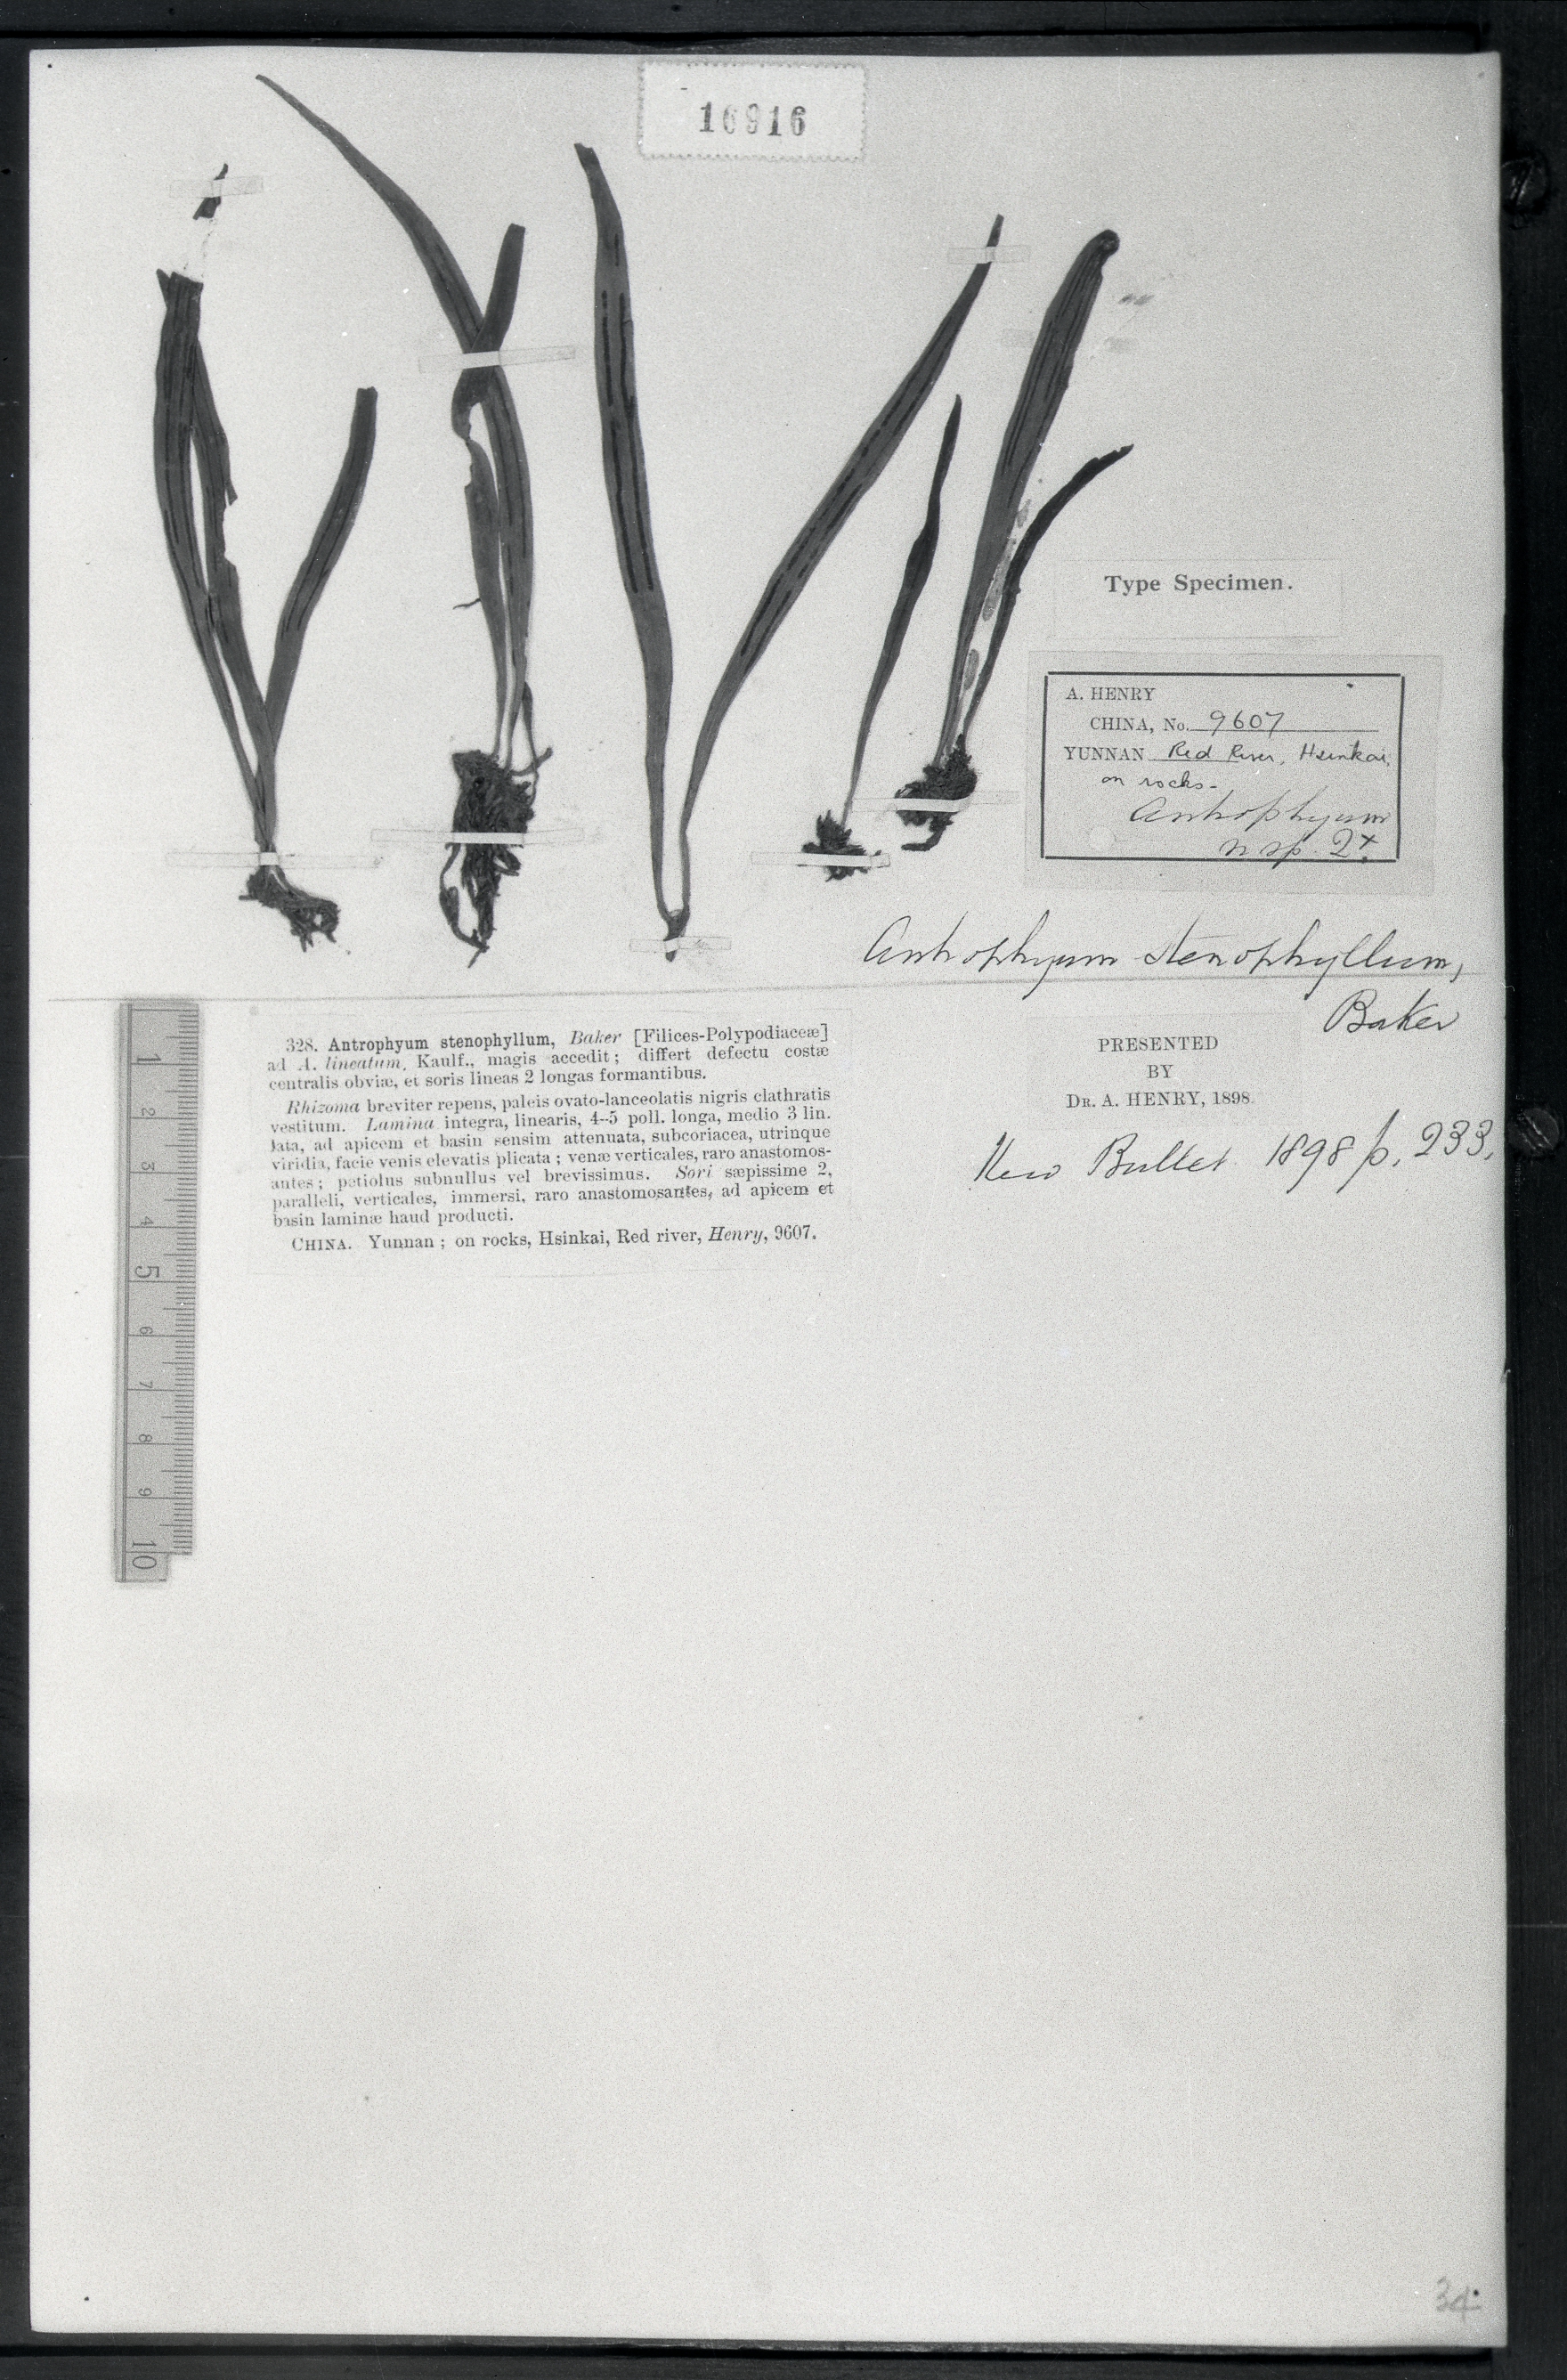 16916
Type Specimen.
A. HENRY
CHINA, No. 9607
YUNNAN Red River, Hsinkai,
on rocks-
Antrophyum
n sp. 2+.
Antrophyum stenophyllum,
Baker
328. Antrophyum stenophyllum, Baker [Filices-Polypodiaceæ]
ad A. lineatum, Kaulf., magis accedit; differt defectu costæ
centralis obviæ, et soris lineas 2 longas formantibus.
Rhizoma breviter repens, paleis ovato-lanceolatis nigris clathratis
vestitum. Lamina integra, linearis, 4-5 poll. longa, medio 3 lin.
lata, ad apicem et basin sensim attenuata, subcoriacea, utrinque
viridia, facie venis elevatis plicata; venæ verticales, raro anastomos-
antes; petiolus subnullus vel brevissimus. Sori sæpissime 2,
paralleli, verticales, immersi, raro anastomosantes, ad apicem et
basin laminæ haud producti.
CHINA. Yunnan; on rocks, Hsinkai, Red river, Henry, 9607.
PRESENTED
BY
DR. A. HENRY, 1898.
Kew Bullet. 1898 p. 233.
1
2
3
4
5
6
7
8
9
10
34